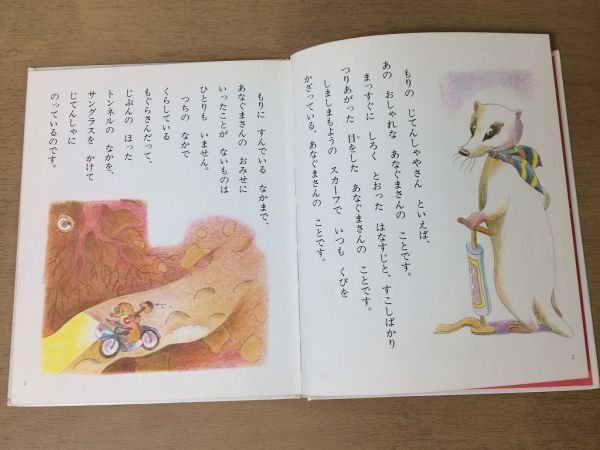 もりの じてんしゃやさん といえば、
あの おしゃれな あなぐまさんの ことです。
まっすぐに しろく とおった はなすじと、すこしばかり
つりあがった 目をした あなぐまさんの ことです。
しましまもようの スカーフで いつも くびを
かざっている、あなぐまさんの ことです。
2
もりに すんでいる なかまで、
あなぐまさんの おみせに
いったことが ないものは
ひとりも いません。
つちの なかで
くらしている
もぐらさんだって、
じぶんの ほった
トンネルの なかを、
サングラスを かけて
じてんしゃに
のっているのです。
3